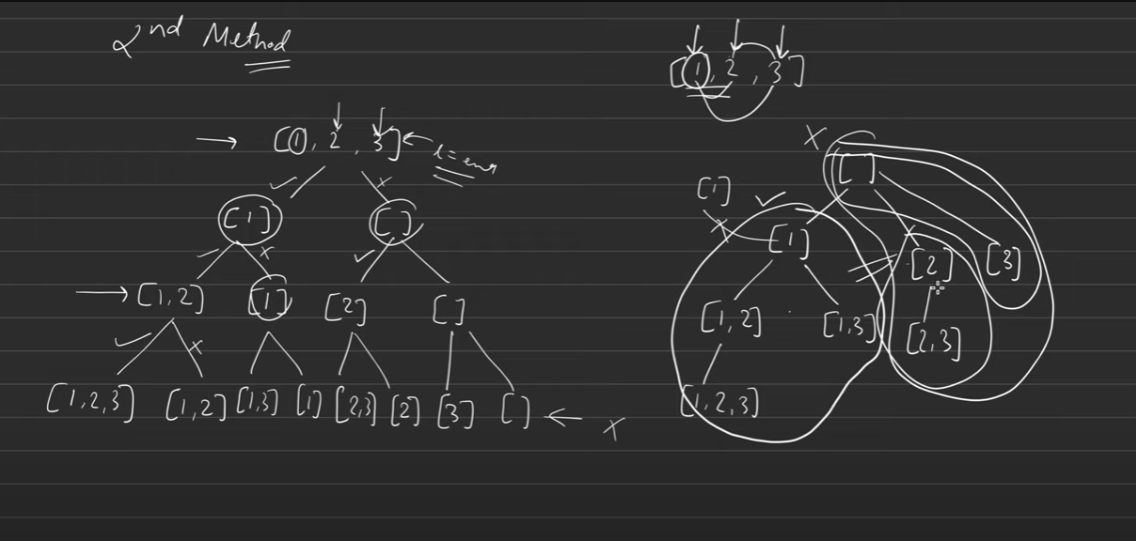 2nd Method
[1, 2, 3]
[1, 2, 3]
[1] [ ]
[1,2] [1] [2] [ ]
[1,2,3] [1,2] [1,3] [1] [2,3] [2] [3] [ ]
x
x
[ ]
[1]
[1] [2] [3]
[1,2] [1,3] [2,3]
[1,2,3]